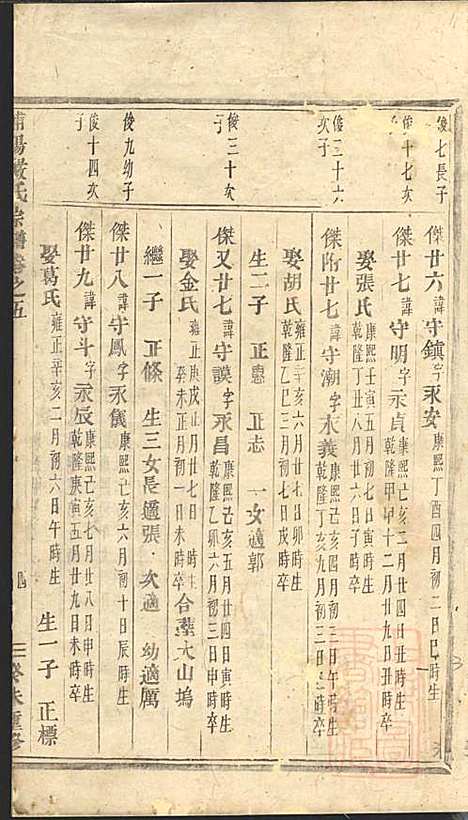 俊七長子
傑廿六諱守鎮字永安康熙丁酉四月初二日巳時生
俊十七次子
傑廿七諱守明字永貞康熙己亥二月廿四日丑時生
乾隆甲申十二月十九日丑時卒
娶張氏康熙壬寅五月初七日寅時生
乾隆丁丑八月廿六日子時卒
俊三十六次子
傑附廿七諱守潮字永義康熙己亥四月初三日寅時生
乾隆丁亥九月初一日丑時卒
娶胡氏雍正辛亥六月三十日卯時生
乾隆乙巳三月初七日戌時卒
生二子 正惠 正志 一女適郭
俊三十次子
傑又廿七諱守謨字永昌康熙己亥五月廿四日寅時生
乾隆乙卯六月初三日寅時卒
娶金氏雍正庚戌四月廿七日 時生
癸未正月初一日未時卒
合葬大山塢
繼一子 正條 生三女長適張 次適 幼適厲
俊九幼子
傑廿八諱守鳳字永儀康熙己亥六月初十日辰時生
俊十四次子
傑廿九諱守斗字永辰康熙己亥七月廿八日申時生
乾隆庚寅五月廿九日未時卒
娶葛氏雍正辛亥二月初六日午時生
生一子 正標
浦陽嚴氏宗譜卷之五
癸未重修